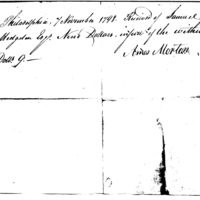 Philadelphia, 7 November 1791. Received of Samuel
Hodgdon Esqr. Nine Dollars. in pow of the within
Dolls 9.— Amos Morton